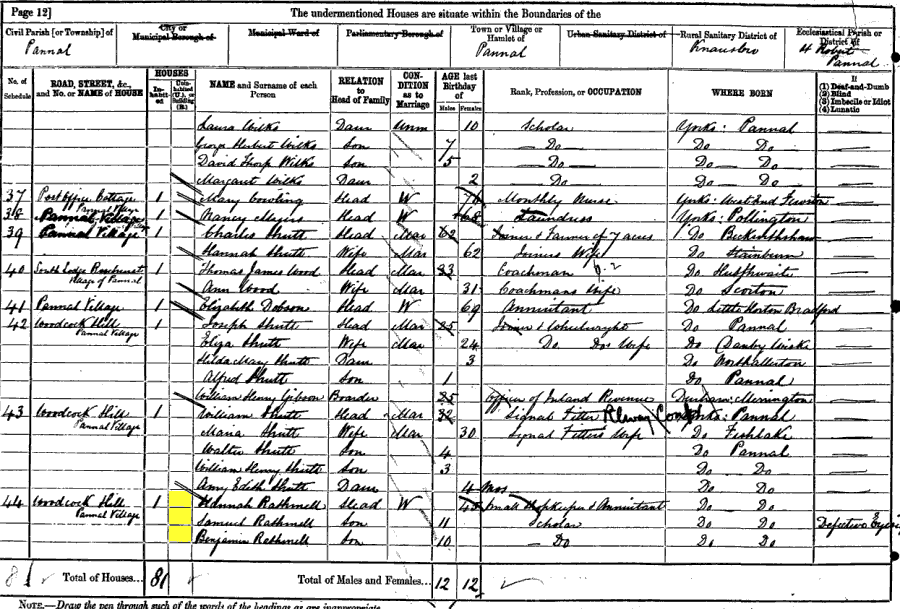 Page 12]
The undermentioned Houses are situate within the Boundaries of the
Civil Parish [or Township] of
Pannal
City or
Municipal Borough of
Municipal Ward of
Parliamentary Borough of
Town or Village or
Hamlet of
Pannal
Urban Sanitary District of
Rural Sanitary District of
Knausbro
Ecclesiastical Parish or
District of
Pannal
No. of
Schedule
ROAD, STREET, &c.,
and No. or NAME of HOUSE
HOUSES
In-
habit-
ed
NAME and Surname of each
Person
RELATION
to
Head of Family
CON-
DITION
as to
Marriage
AGE last
Birthday
of
Males Females
Rank, Profession, or OCCUPATION
WHERE BORN
If
(1) Deaf-and-Dumb
(2) Blind
(3) Imbecile or Idiot
(4) Lunatic
Laura Wilks Daur Unm 10 Scholar Yorks: Pannal
George Herbert Wilks Son 7 Do Do Do
David Thorp Wilks Son 5 Do Do Do
Margaret Wilks Daur 2 Do Do Do
37 Post Office Cottage 1 Mary Cowling Head W 76 Monthly Nurse Yorks: West End
38 Pannal Village 1 Nancy Myers Head W 68 Laundress Yorks: Pollington
39 Pannal Village 1 Charles Shutt Head Mar 62 Joiner & Farmer of 7 acres Do
Hannah Shutt Wife Mar 62 Joiners Wife Do Stainburn
40 South Lodge
Village of Pannal
1 Thomas James Wood Head Mar 33 Coachman Do Husthwaite
Ann Wood Wife Mar 31 Coachmans Wife Do Scorton
41 Pannal Village 1 Elizabeth Dobson Head W 69 Annuitant Do Little Horton Bradford
42 Woodcock Hill
Pannal Village
1 Joseph Shutt Head Mar 25 Joiner & Wheelwright Do Pannal
Eliza Shutt Wife Mar 24 Do Dos Wife Do Danby Wiske
Hilda Mary Shutt Daur 3 Do Northallerton
Alfred Shutt Son 1 Do Pannal
William Henry Gibson Boarder 25 Officer of Inland Revenue Durham: Merrington
43 Woodcock Hill
Pannal Village
1 William Shutt Head Mar 32 Signal Fitter Yorks: Pannal
Maria Shutt Wife Mar 30 Signal Fitters Wife Do Fishlake
Walter Shutt Son 4 Do Pannal
William Henry Shutt Son 3 Do Do
Amy Edith Shutt Daur 4 mos Do Do
44 Woodcock Hill
Pannal Village
1 Hannah Rathmell Head W 48 Small Shopkeeper & Annuitant Do Do
Samuel Rathmell Son 11 Scholar Do Do Defective
Benjamin Rathmell Son 10 Do Do Do
81 Total of Houses... 81 Total of Males and Females... 12 12
NOTE.—Draw the pen through such of the words of the headings as are inappropriate.